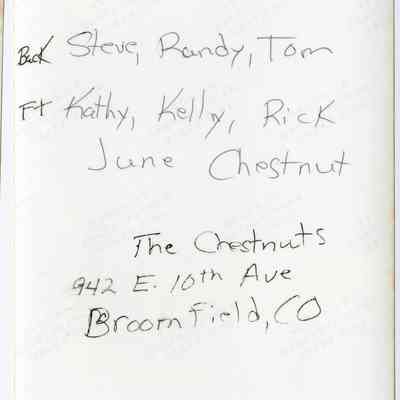 Back Steve, Randy, Tom
Ft Kathy, Kelly, Rick
June Chestnut
The Chestnuts
942 E. 10th Ave
Broomfield, CO